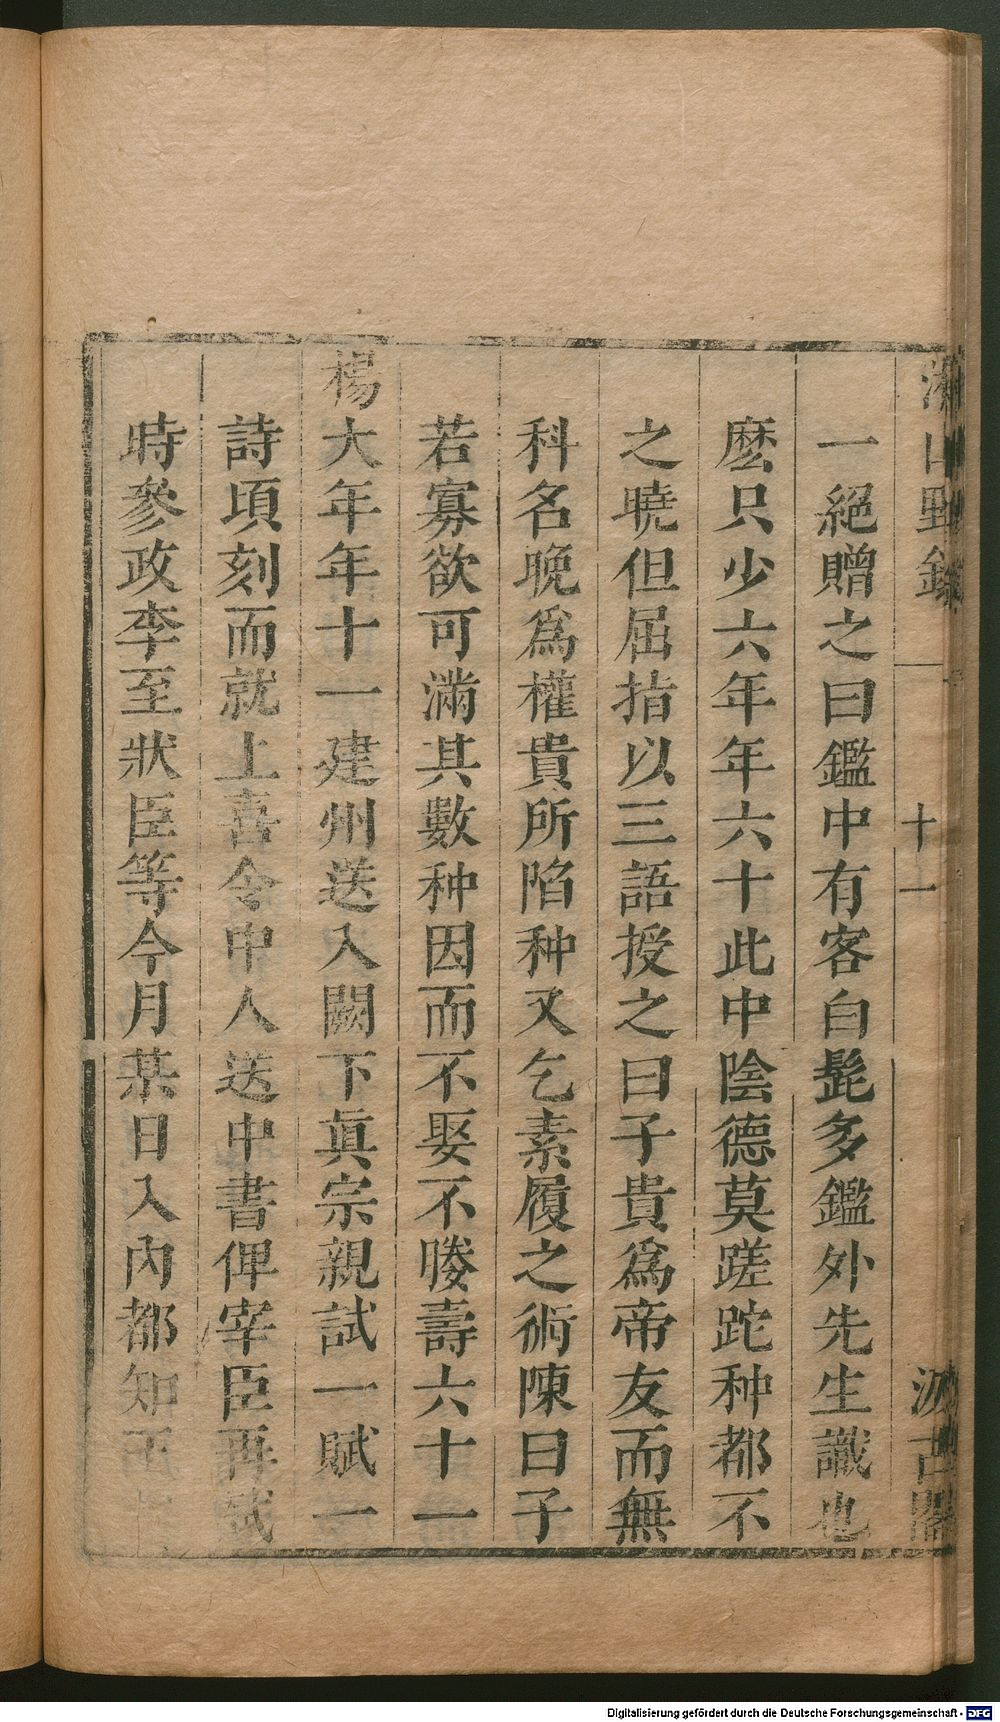 湘山野錄
十一
汲古閣
一絕贈之曰鑑中有客白髭多鑑外先生識也
麽只少六年年六十此中陰德莫蹉跎种都不
之曉但屈指以三語授之曰子貴爲帝友而無
科名晚爲權貴所陷种又乞素履之術陳曰子
若寡欲可滿其數种因而不娶不媵壽六十一
楊大年年十一建州送入闕下眞宗親試一賦一
詩頃刻而就上喜令中人送中書俾宰臣再試
時參政李至狀臣等今月某日入內都知王
Digitalisierung gefördert durch die Deutsche Forschungsgemeinschaft - DFG